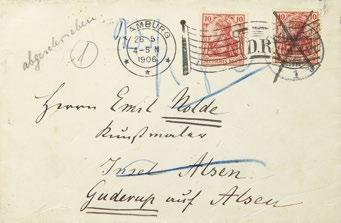 abgeschrieben
1
HAMBURG
26.5
4-5 N
1906
10 10
D.R.
10
Herrn Emil Nolde
Kunstmaler
Insel Alsen.
Guderup auf Alsen